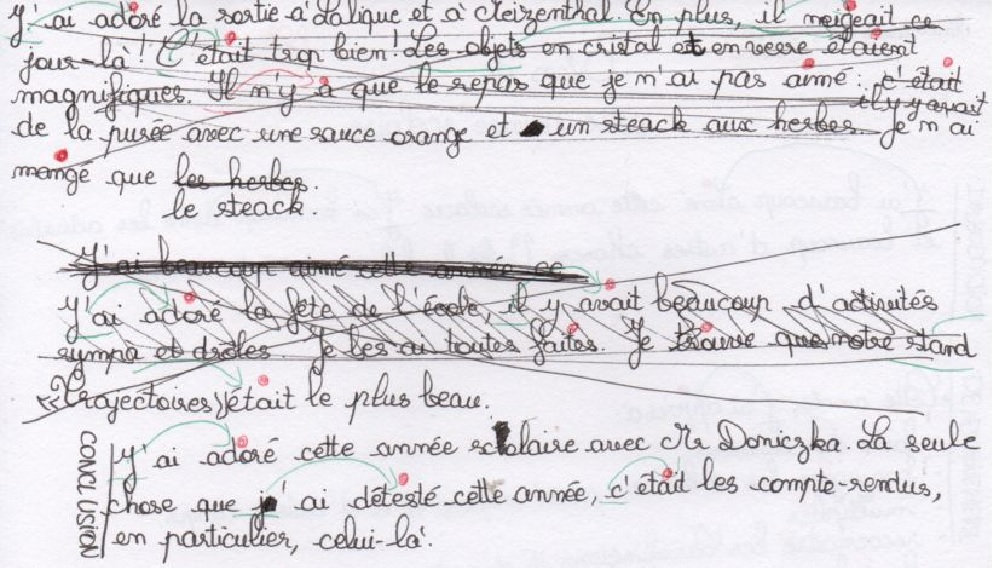 J'ai adoré la sortie à Lalique et à Meizenthal. En plus, il neigeait ce
jour-là! C'était trop bien! Les objets en cristal et en verre étaient
magnifiques. Il n'y a que le repas que je n'ai pas aimé: c'était
il y avait
de la purée avec une sauce orange et un steack aux herbes. Je n'ai
mangé que les herbes.
le steack
J'ai beaucoup aimé cette année ce
J'ai adoré la fête de l'école, il y avait beaucoup d'activités
sympa et drôles. Je les ai toutes faites. Je trouve que notre stand
«Trajectoires» était le plus beau.
CONCLUSION
J'ai adoré cette année scolaire avec Mr Doniczka. La seule
chose que j'ai détesté cette année, c'était les compte-rendus,
en particulier, celui-là.